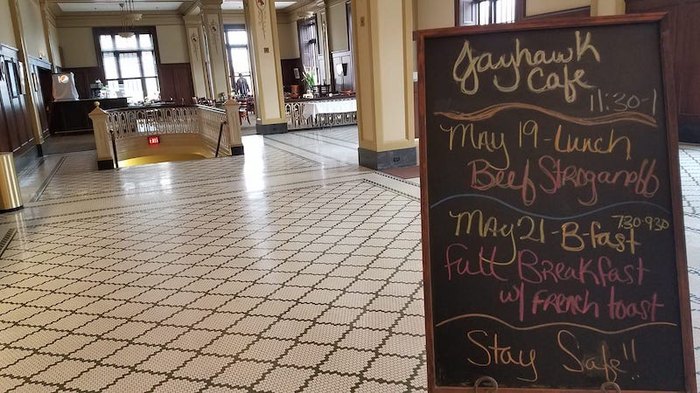 Jayhawk
Cafe
11:30-1
May 19-Lunch
Beef Stroganoff
May 21-B-fast 730-930
Full Breakfast
w/ French toast
Stay Safe!!
EXIT